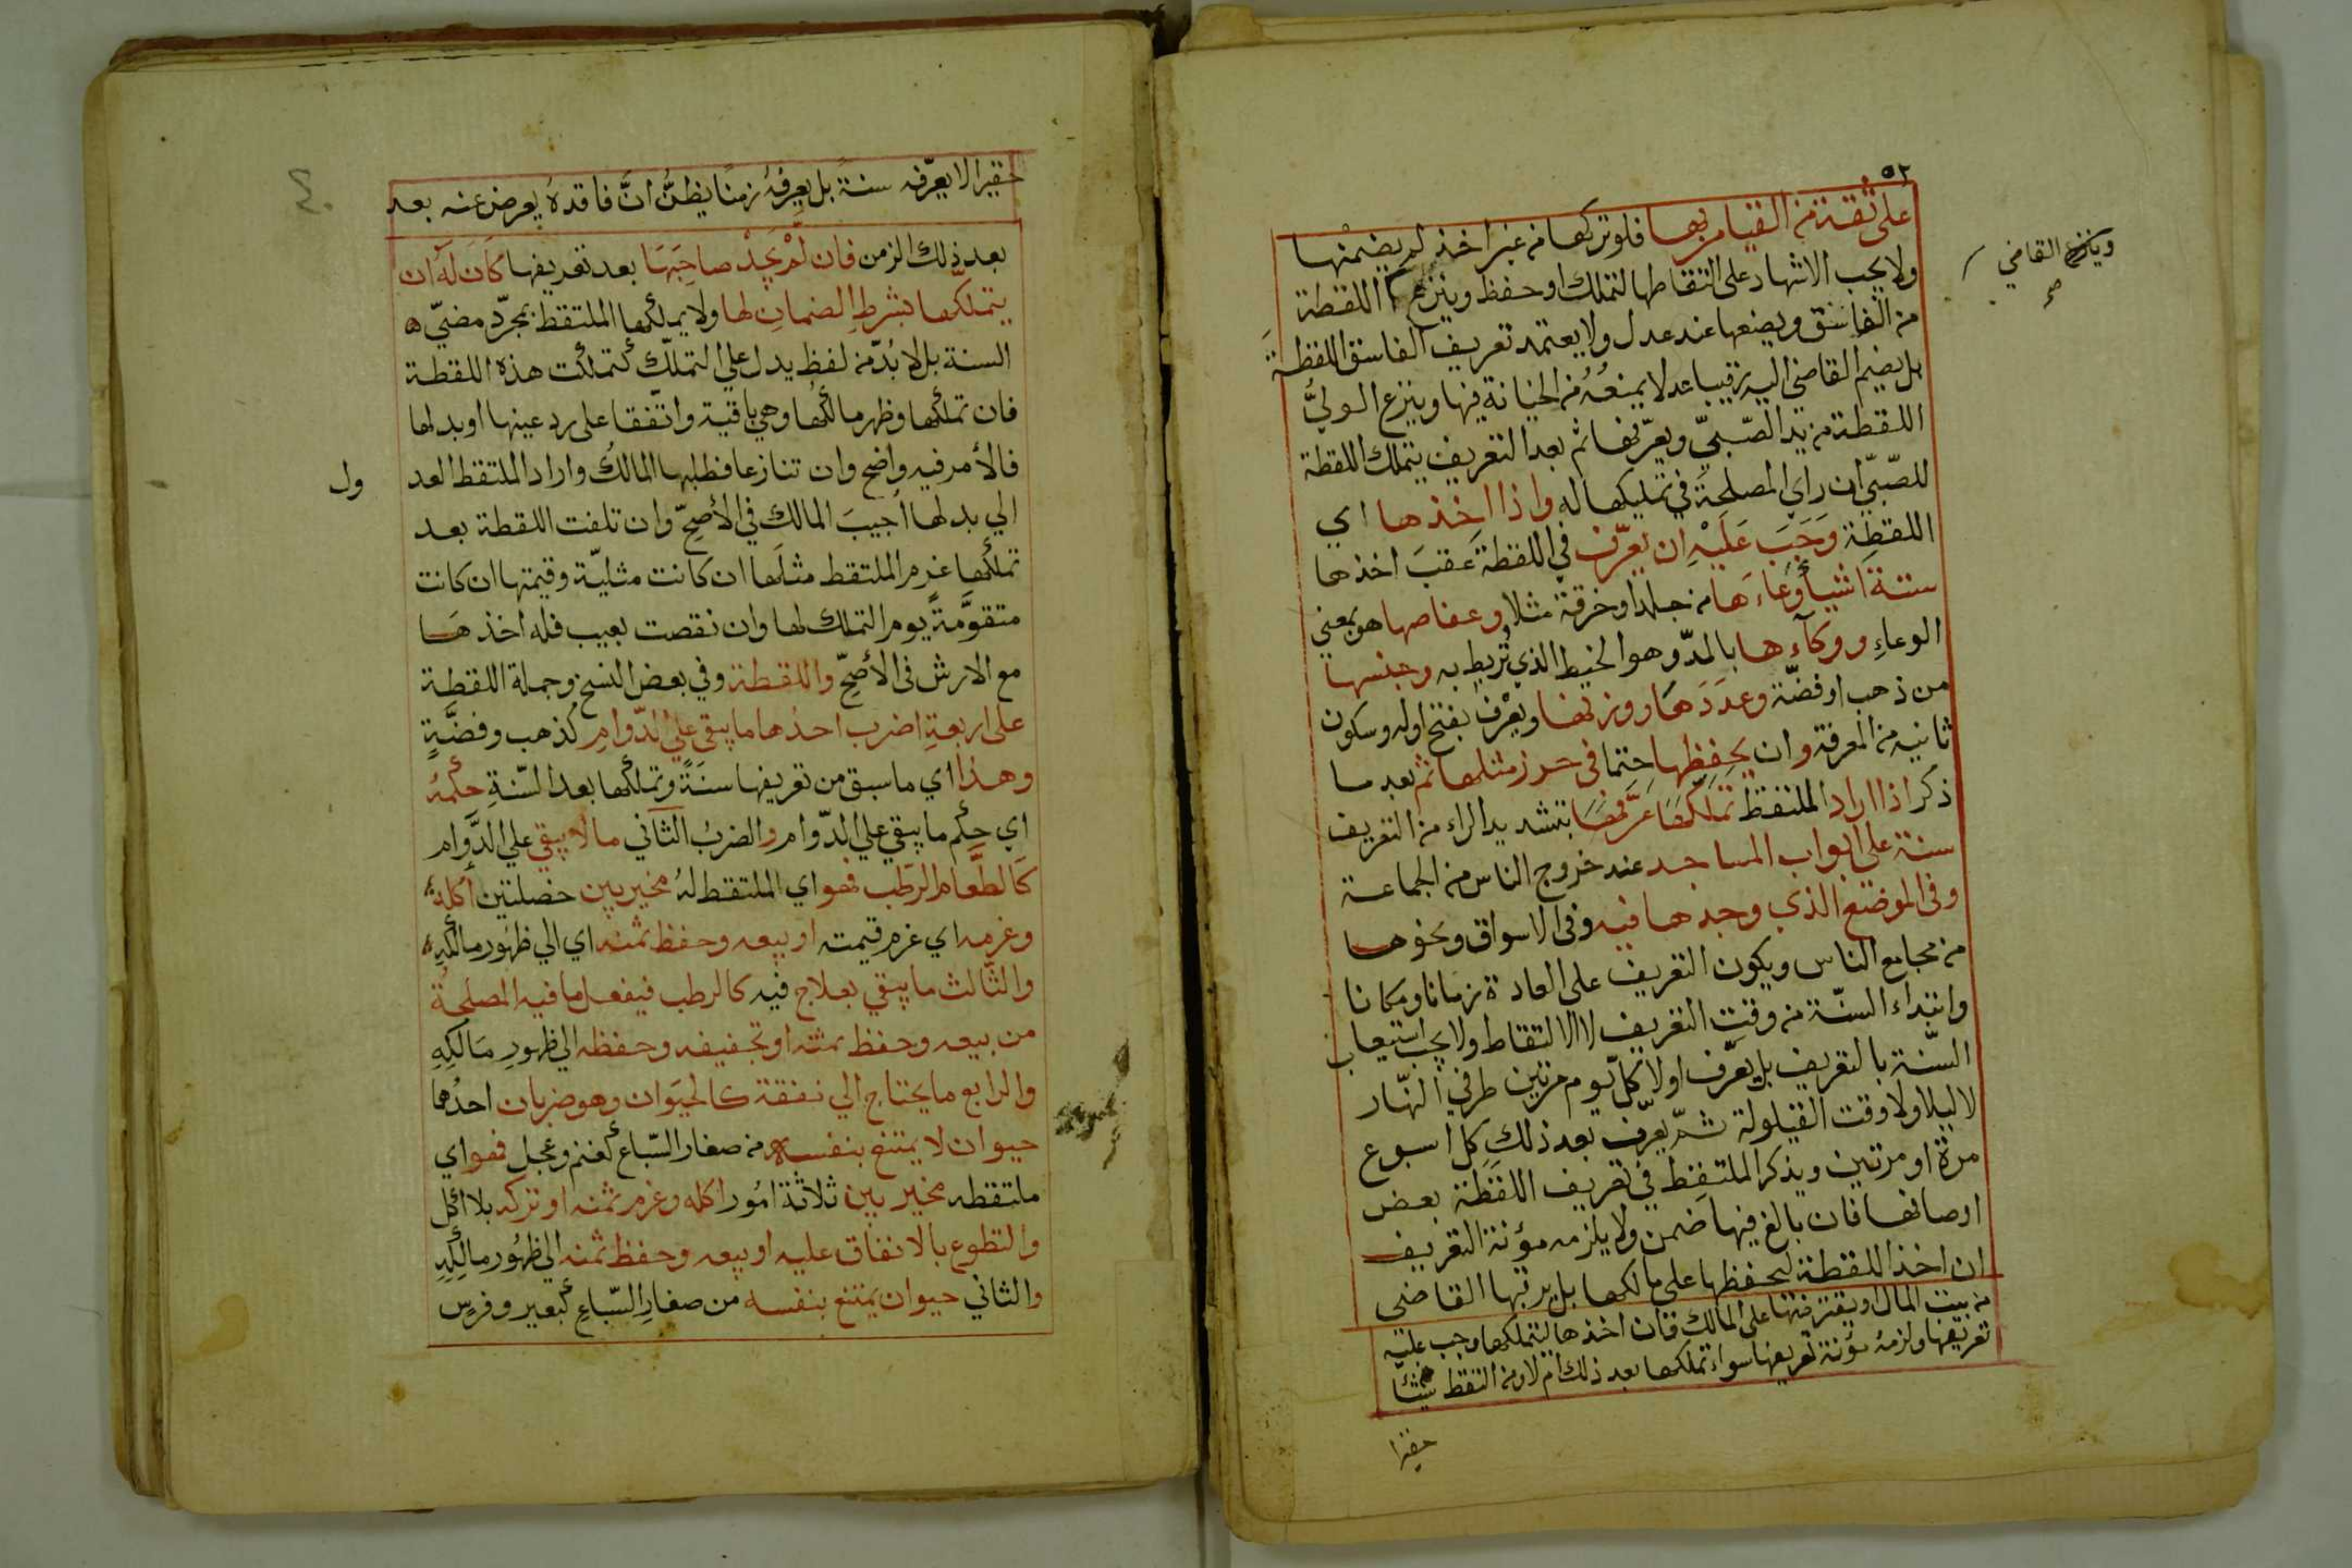 ٥٢
على ثقة من القيام بها فلو تركها من غير اخذ لم يضمنها
ولا يجب الاشهاد على التقاطها لتملك او حفظ وينزع اللقطة
وينزع القاضي
صح
من الفاسق ويضعها عند عدل ولا يعتمد تعريف الفاسق اللقطة
بل يضم القاضي اليه رقيبا عدلا يمنعُهُ من الخيانة فيها وينزع الوليُّ
اللقطة من يد الصّبيّ ويعرّفها ثم بعد التعريف يتملك اللقطة
للصّبيّ ان راي المصلحة في تمليكها له واذا اخذها اي
اللقطة وَجَبَ عَلَيْهِ ان يعرّف في اللقطة عقبَ اخذها
ستة اشيا وِعَاءَهَا من جلد او خرقة مثلا وعفاصها هو بمعني
الوعاءِ ووكآءها بالمدّ وهو الخيط الذي تُربط به وجنسها
من ذهب او فضّة وعدَدَهَا ووزنها ويعْرف بفتح اوله وسكون
ثانيه من المعرفة وان يحفظها حتما في حرز مثلها ثم بعد ما
ذكر اذا اراد الملتقط تملّكها عَرَّفهَا بتشديد الراء من التعريف
سنة على ابواب المساجد عند خروج الناس من الجماعة
وفى الموضع الذي وجدها فيه وفى الاسواق ونحوها
من مجامع الناس ويكون التعريف على العادة زمانا ومكانا
وابتداء السّنة من وقت التعريف لا الالتقاط ولا يجب استيعاب
السّنة بالتعريف بل يعرّف اولا كلّ يوم مرتين طرفي النّهار
لا ليلا ولا وقت القيلولة ثمّ يعرّف بعد ذلك كل اسبوع
مرة او مرتين ويذكر الملتقط في تعريف اللقطة بعض
اوصافها فان بالغ فيها ضمن ولا يلزمه مؤنة التعريف
ان اخذ اللقطة ليحفظها على مالكها بل يرتبها القاضى
من بيت المال او يقترضها على المالك فان اخذها ليتملكها وجب عليه
تعريفها ولزمهُ مؤنة تعريفها سواء تملكها بعد ذلك ام لا ومن التقط شيئا
حقيرا
حقيرا لا يعرّفه سنة بل يعرفهُ زمنًا يظنُّ انَّ فاقدهُ يعرض عنه بعد
بعد ذلك الزمن فان لَمْ يجدْ صاحِبَهَا بعد تعريفها كَانَ لَهُ ان
يتملّكها بشرطِ الضمانِ لها ولا يملكها الملتقط بمجرّد مضيّ
السنة بل لا بُدّ من لفظ يدل على التملّك كتملكت هذه اللقطة
فان تملكها وظهر مالكُها وهي باقية واتّفقا على رد عينها او بدلها
فالأمر فيه واضح وان تنازعا فطلبها المالكُ واراد الملتقط العد
ول
الي بدلها أجيبَ المالك في الأصحّ وان تلفت اللقطة بعد
تملكها غرم الملتقط مثلَها ان كانت مثليّة وقيمتها ان كانت
متقوَّمةً يوم التملك لها وان نقصت بعيب فله اخذهَا
مع الارش فى الأصحّ واللقطة وفي بعض النسخ وجملة اللقطة
على اربعةِ اضرب احدُها ما يبقى علي الدّوامِ كذهب وفضَّةٍ
وهذا اي ما سبق من تعريفها سنَةً وتملكها بعد السّنةِ حكمهُ
اي حكم ما يبقي علي الدّوام والضربُ الثاني ما لا يبقي علي الدَّوام
كَالطَّعَام الرطَب فهو اي الملتقط لهُ مخير بين خصلتين أكله
وغرمه اي غرم قيمته او بيعه وحفظ ثمنه اي الي ظهُور مالكهِ
والثَّالث ما يبقي بعلاج فيه كالرطب فيفعل ما فيه المصلحةُ
من بيعه وحفظ ثمنه او تجفيفه وحفظه الي ظهورِ مَالكِهِ
والرابع ما يحتاج الي نفقة كالحيَوان وهو ضربان احدُهما
حيوان لا يمتنع بنفسه من صغار السّباع كغنم وعجل فهو اي
ملتقطه مخير بين ثلاثة امُور اكله وغرم ثمنه او تركه بلا اكل
والتطوع بالانفاق عليه او بيعه وحفظ ثمنه الي ظهُور مالكِهِ
والثاني حيوان يمتنع بنفسه من صغارِ السّباعِ كبعير وفرسٍ